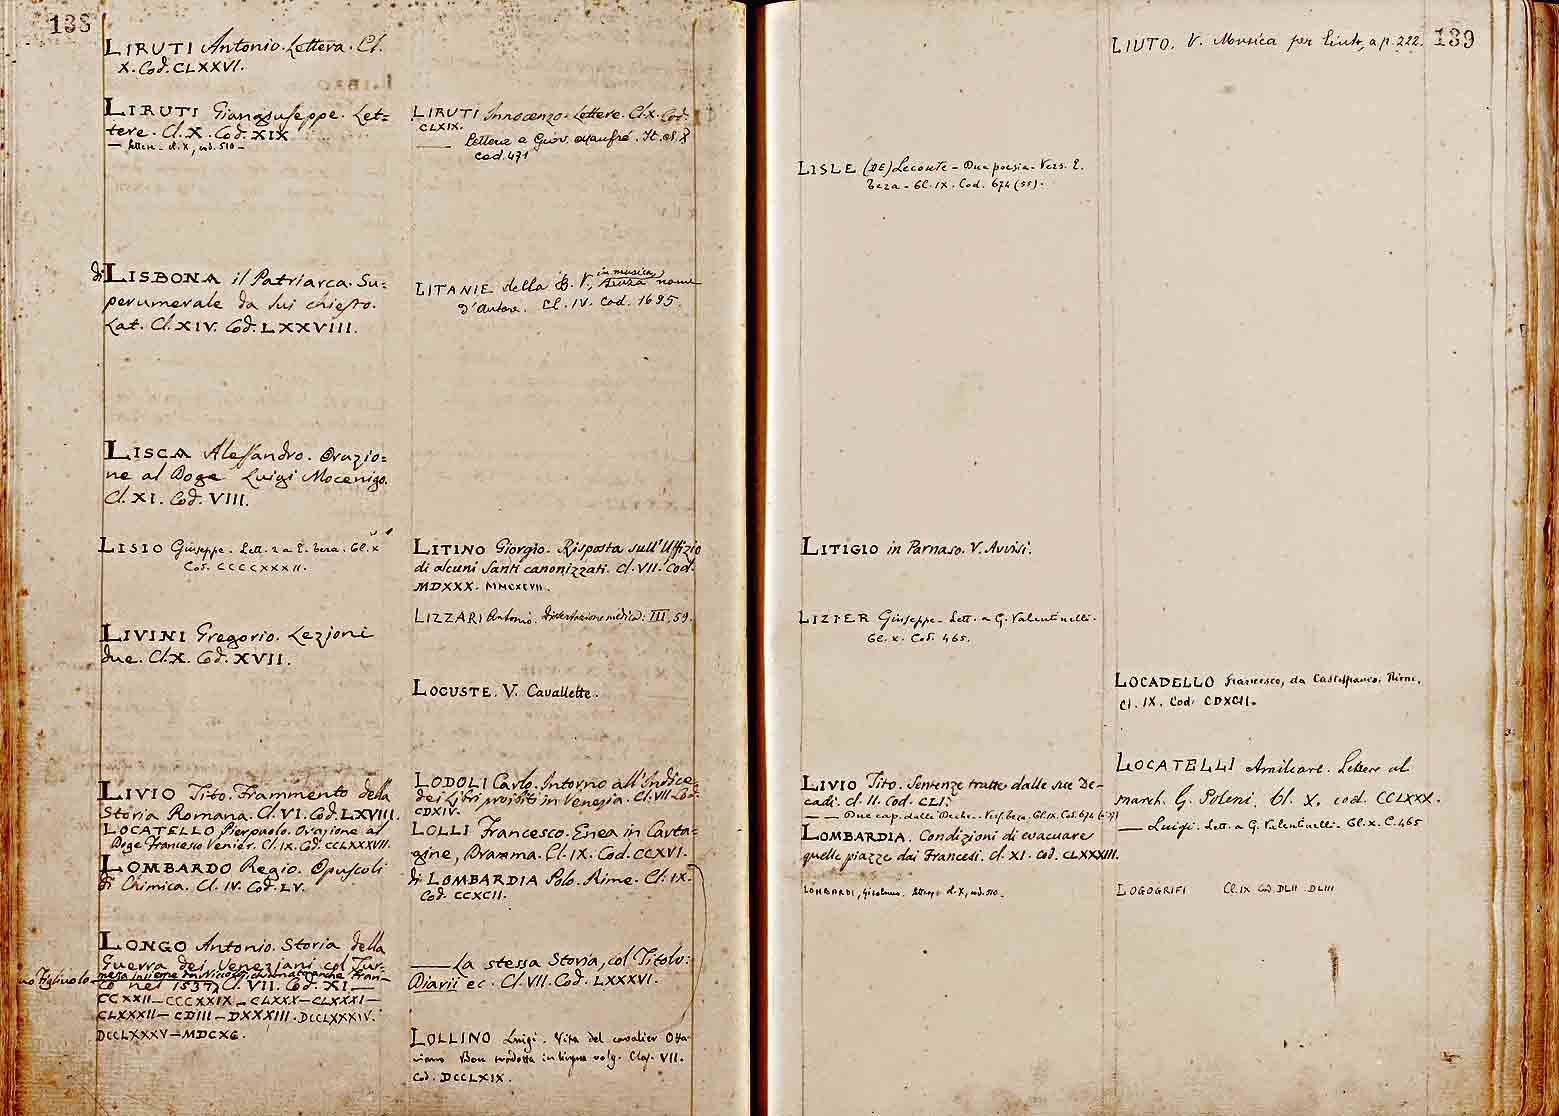 138
LIRUTI Antonio. Lettera. Cl.
X. Cod. CLXXVI.
LIRUTI Giangiuseppe. Let=
tere. Cl. X. Cod. XIX
— Lettere - cl. X, cod. 510 -
di LISBONA il Patriarca. Su=
perumerale da lui chiesto.
Lat. Cl. XIV. Cod. LXXVIII.
LISCA Alessandro. Orazio=
ne al Doge Luigi Mocenigo.
Cl. XI. Cod. VIII.
LISIO Giuseppe. Lett. 2 a E. Teza. Cl. X
Cod. CCCCXXXII.
LIVINI Gregorio. Lezioni
due. Cl. X. Cod. XVII.
LIVIO Tito. Frammento della
Storia Romana. Cl. VI. Cod. LXVIII.
LOCATELLO Pierpaolo. Orazione al
Doge Francesco Venier. Cl. IX. Cod. CCLXXXVII.
LOMBARDO Regio. Opuscoli
di Chimica. Cl. IV. Cod. LV.
LONGO Antonio. Storia della
Guerra dei Veneziani col Tur=
co nel 1537. Cl. VII. Cod. XI —
CCXXII — CCCXXIX — CLXXX — CLXXXI —
CLXXXII — CDIII — DXXXIII. DCCLXXXIV.
DCCLXXXV — MDCXC.
LIRUTI Innocenzo. Lettere. Cl. X. Cod.
CLXIX.
—— Lettere a Giov. Manfré. It. cl. X
cod. 471
LITANIE della B. V. in musica, senza nome
d'Autore. Cl. IV. Cod. 1695.
LITINO Giorgio. Risposta sull'Uffizio
di alcuni Santi canonizzati. Cl. VII. Cod.
MDXXX. MMCXCVII.
LIZZARI Antonio. Dissertazione medica: III, 59.
LOCUSTE. V. Cavallette.
LODOLI Carlo. Intorno all'Indice
dei Libri proibiti in Venezia. Cl. VII. Cod.
CDXIV.
LOLLI Francesco. Enea in Carta=
gine, Dramma. Cl. IX. Cod. CCXVI.
di LOMBARDIA Polo. Rime. Cl. IX.
Cod. CCXCII.
—— La stessa Storia, col Titolo:
Diarii ec. Cl. VII. Cod. LXXXVI.
LOLLINO Luigi. Vita del cavalier Otta
viano Bon tradotta in lingua volg. Clas. VII.
Cod. DCCLXIX.
139
LISLE (DE) Leconte - Due poesie - Vers. E.
Teza - Cl. IX. Cod. 674 (55).
LITIGIO in Parnaso. V. Avvisi.
LIZIER Giuseppe. Lett. a G. Valentinelli.
Cl. X. Cod. 465.
LIVIO Tito. Sentenze tratte dalle sue De-
cadi. cl. II. Cod. CLI.
LOMBARDIA. Condizioni di evacuare
quelle piazze dai Francesi. cl. XI. cod. CLXXXIII.
LOMBARDI, Girolamo. Lettere cl. X, cod. 510.
LIUTO. V. Musica per liuto, a p. 222.
LOCADELLO Francesco, da Castelfranco. Rime.
Cl. IX. Cod. CDXCII.
LOCATELLI Amilcare. Lettere al
march. G. Poleni. Cl. X. cod. CCLXXX.
—— Luigi. Lett. a G. Valentinelli. Cl. X. C. 465
LOGOGRIFI Cl. IX Cod. DLII. DLIII